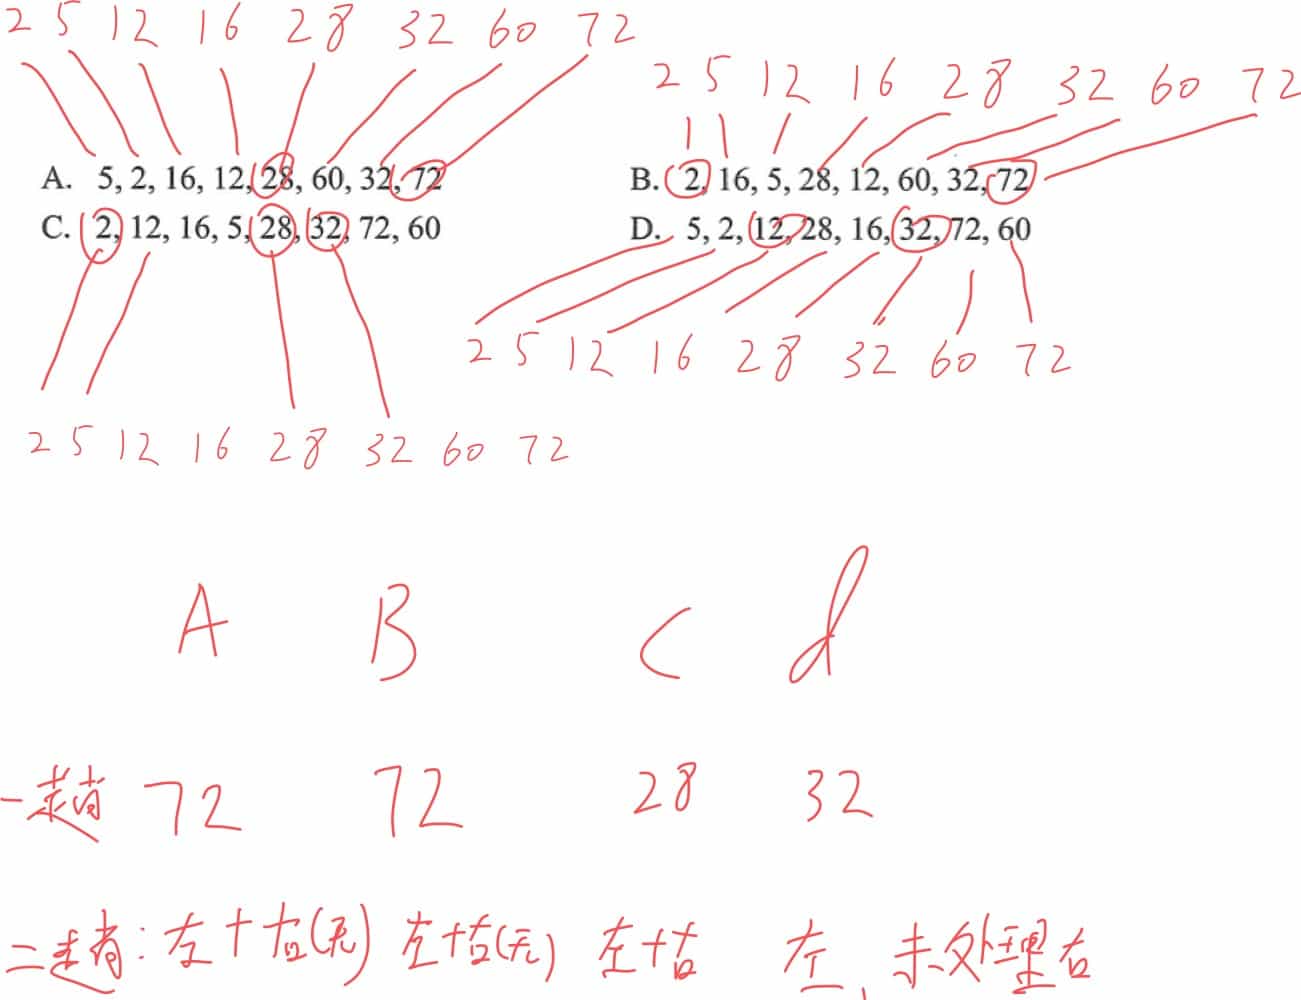 2 5 12 16 28 32 60 72
2 5 12 16 28 32 60 72
A. 5, 2, 16, 12, 28, 60, 32, 72
B. 2, 16, 5, 28, 12, 60, 32, 72
C. 2, 12, 16, 5, 28, 32, 72, 60
D. 5, 2, 12, 28, 16, 32, 72, 60
2 5 12 16 28 32 60 72
2 5 12 16 28 32 60 72
A B C d
一趟 72 72 28 32
二趟: 左+右(无) 左+右(无) 左+右 左, 未处理右